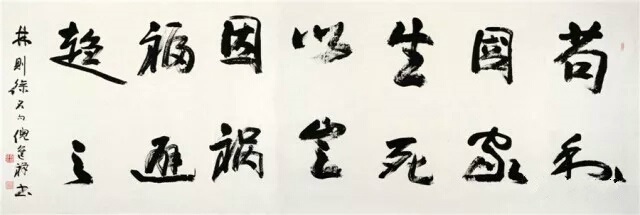 苟利
国家
生死
以岂
因祸
福避
趋之
林则徐名句倪书